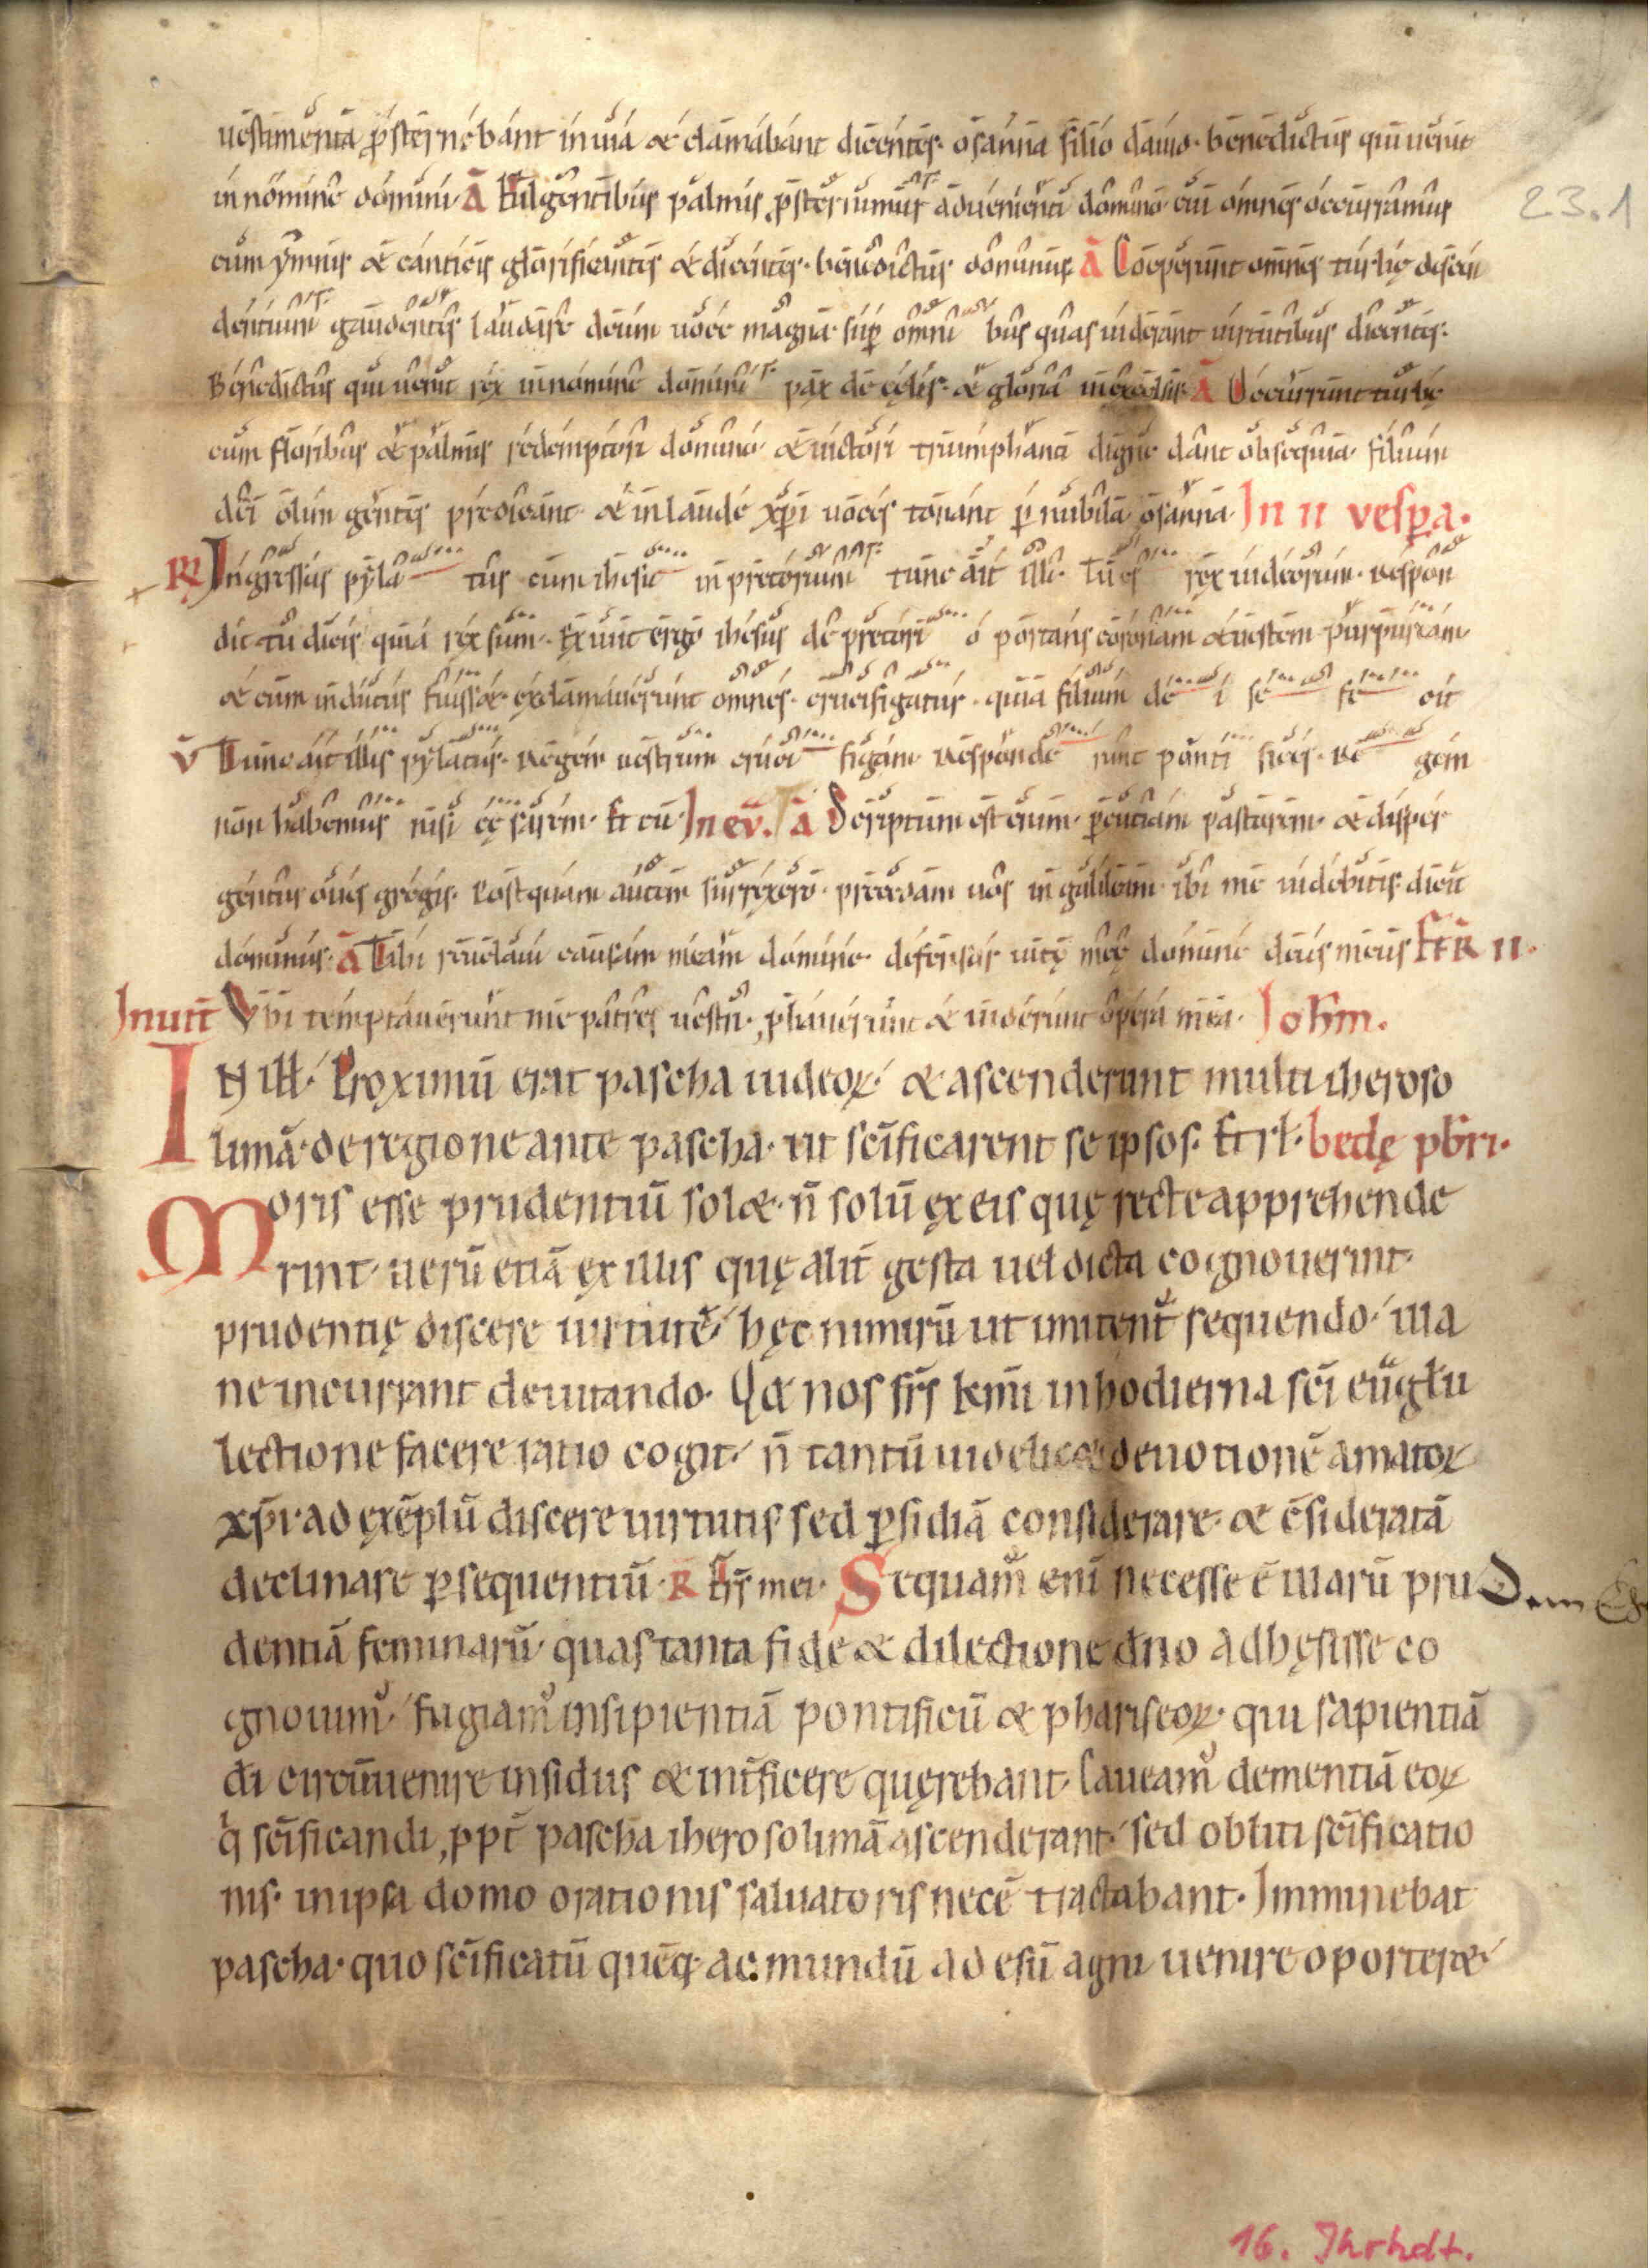 uestimenta ꝓsternebant in uia & clamabant dicentes· osanna filio dauid· benedictus qui uenit
in nomine domini· A Fulgentibus palmis ꝓsternimur aduenienti domino· cui omnes occurramus
cum ymnis & canticis glorificantes & dicentes· benedictus dominus A Coeperunt omnes turbę descen
dentium gaudentes laudare deum uoce magna· suꝑ omni bus quas uiderant uirtutibus dicentes·
Benedictus qui uenit rex in nomine domini pax de cęlis· & gloria in excelsis· A Occurrunt turbę
cum floribus & palmis redemptori domino· & uictori triumphanti digne dant obsequia· filium
dei olim gentes predicant· & in laude xp̄i uoces tonant ꝑ nubila osanna In II vesp̄a·
R Ingressus pyla tus cum ihesu in pretorium tunc ait illi· Tu es rex iudeorum· Respon
dit· tu dicis quia rex sum· Exiuit ergo ihesus de pretori o portans coronam & uestem purpuream·
& cum indutus fuiss&· exclamauerunt omnes· crucifigatur· quia filium de i se fe cit
V Tunc ait illis pylatus· Regem uestrum cruci figam· Responde runt ponti fices· Re gem
non habemus nisi cę sarem· Et cū· In ev̄. ā Scriptum est enim· ꝑcutiam pastorem· & disper
gentur oues gregis· Postquam autem surrexero· precedam uos in galileam· ibi me uidebitis· dicit
dominus· A Tibi reuelaui causam meam domine· defensor uitę meę domine deus meus FER̄ II·
Inuit̄ Vbi temptauerunt me patres uestri· ꝓbauerunt & uiderunt opera mea· Ioh̄m.
IN ill̄· Proximū erat pascha iudeoꝝ· & ascenderunt multi iheroso
limā· de regione ante pascha· ut sc̄ificarent se ipsos· Et rł· bedę pbr̄i·
Moris esse prudentiū sol&· n̄ solū ex eis quę recte apprehende
rint· uerū etiā ex illis quę alit̄ gesta uel dicta cognouerint·
prudentię discere uirtutē· hęc nimirū ut imitent̄ sequendo· illa
ne incurrant deuitando· Qd̄ nos fr̄s km̄i in hodierna sc̄i eūgłii
lectione facere ratio cogit· n̄ tantū uidelic& deuotionē amatoꝝ
xp̄i ad exēplū discere uirtutis sed ꝑfidiā considerare· & c̄sideratā
declinare ꝑsequentiū· R Fr̄s mei· Sequam̄ eni necesse ē illarū pru
dentiā feminarū· quas tanta fide & dilectione dn̄o adhęsisse co
gnouim̄· fugiam̄ insipientiā pontificū & phariseoꝝ· qui sapientiā
dī circūuenire insidiis & int̄ficere quęrebant· Caueam̄ dementiā eoꝝ
q̄ sc̄ificandi ꝓpt̄ pascha iherosolimā ascenderant· sed obliti sc̄ificatio
nis· in ipsa domo orationis saluatoris necē tractabant· Imminebat
pascha· quo sc̄ificatū quēq· ac mundū ad esū agni uenire oporter&·
23.1
16. Jhrhdt.